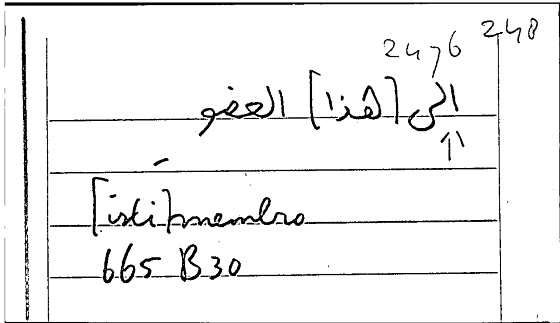 2476 248
الى [هذا] العضو
[isti] membro
665 B30